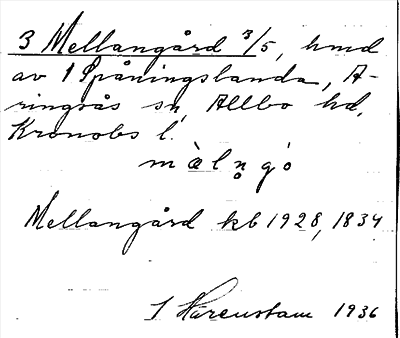 3 Mellangård 3/5, hmd
av 1 Spåningslanda, A-
ringsås sn, Allbo hd,
Kronobs l.
màlṇgó
Mellangård kb 1928, 1834
S Härenstam 1936